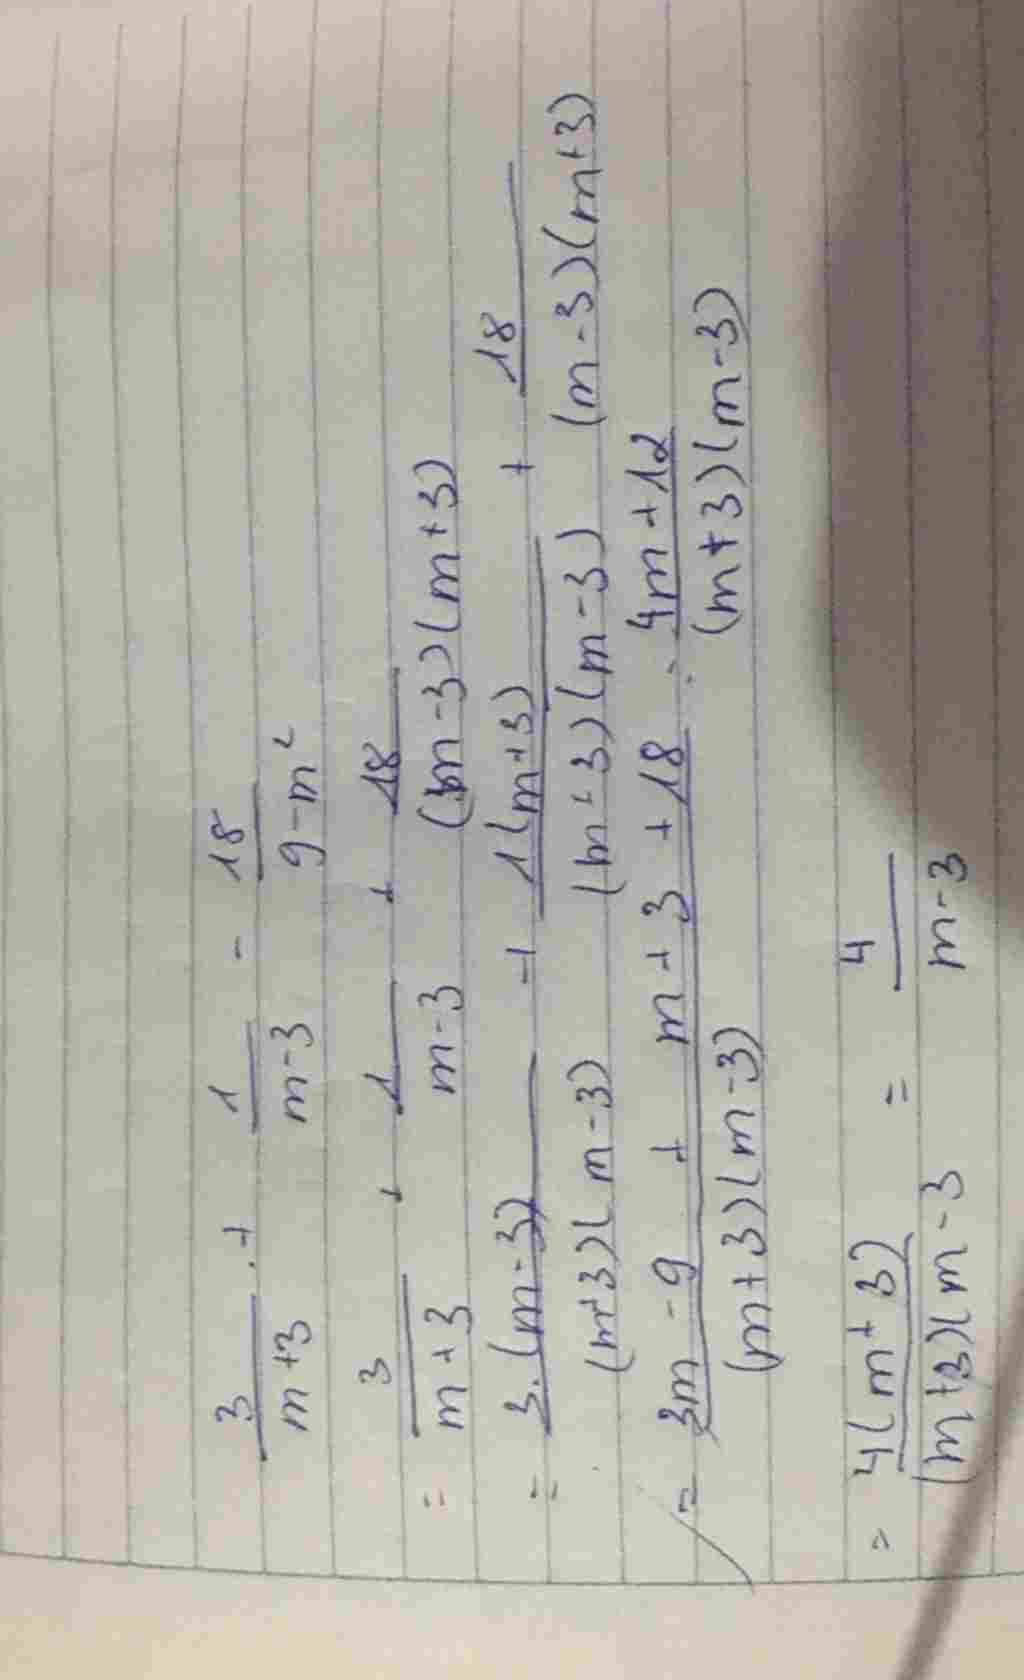 3/(m+3) + 1/(m-3) - 18/(9-m²)
= 3/(m+3) + 1/(m-3) + 18/((m-3)(m+3))
= 3.(m-3)/((m+3)(m-3)) + 1(m+3)/((m+3)(m-3)) + 18/((m-3)(m+3))
= (3m-9 + m+3+18)/((m+3)(m-3)) = (4m+12)/((m+3)(m-3))
= 4(m+3)/((m+3)(m-3) = 4/(m-3)